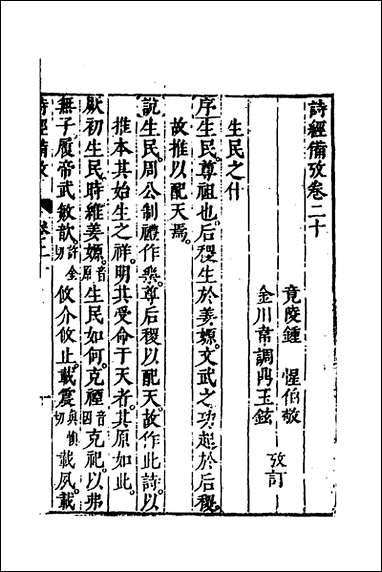 詩經備攷卷二十
竟陵鍾 惺伯敬
金川韋調鼎玉鉉
攷訂
生民之什
序生民。尊祖也。后稷生於姜嫄。文武之功起於后稷。
故推以配天焉。
說生民。周公制禮作樂。尊后稷以配天。故作此詩以
推本其始生之祥。明其受命于天者。其原如此。
厥初生民。時維姜嫄。音原生民如何。克禋音因克祀。以弗
無子。履帝武敏歆。許金切攸介攸止。載震與慎切載夙。載
詩經備攷 卷二